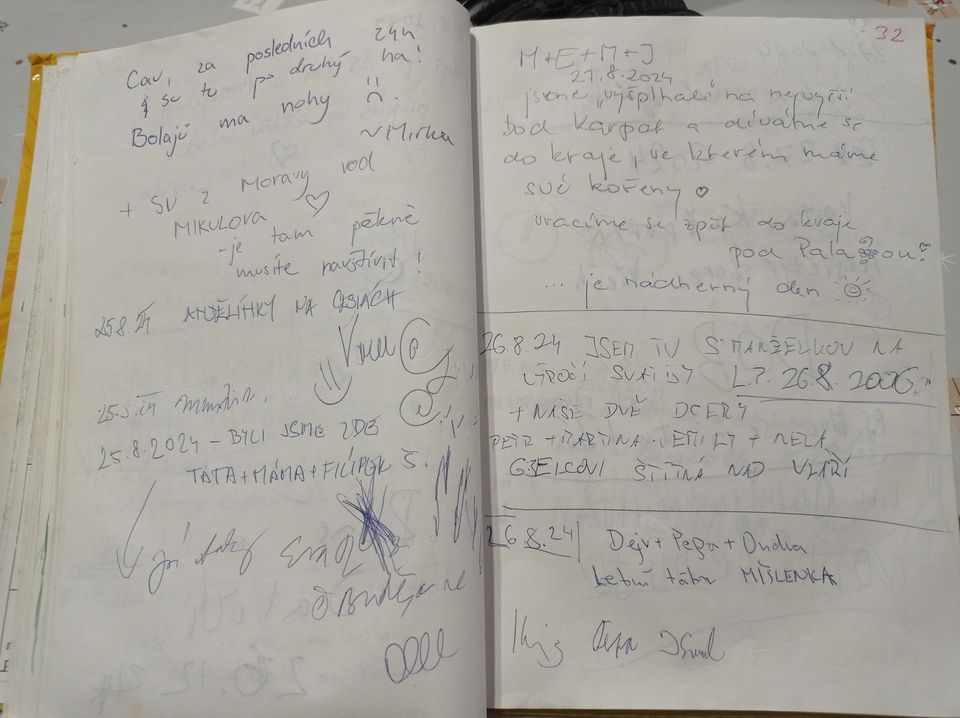 Čav, za posledních 24h
se tu po druhý na!
Bolajů ma nohy
~Mirka
+ SV z Moravy vod
MIKULOVA ♡
-je tam pěkně
musíte navštívit!
25.8.24 ANDĚLÍNKY NA CESTÁCH
25.8.2024 - BYLI JSME ZDE
TÁTA+MÁMA+FILÍPEK Š.
já taky
32
M+E+M+J
27.8.2024
jsme vyšplhali na nejvyšší
bod Karpat a díváme se
do kraje, ve kterém máme
své kořeny
vracíme se zpět do kraje
pod Pálavou!
... je nádherný den
26.8.24 JSEM TU S MANŽELKOU NA
VÝROČÍ SVATBY L.P. 26.8.2006
+ NAŠE DVĚ DCERY
PETR + MARTINA + EMILY + NELA
ŠTÍTNÁ NAD VLÁŘÍ
26.8.24 Dejv + Pepa + Ondra
Letní tábor MÍŠLENKA